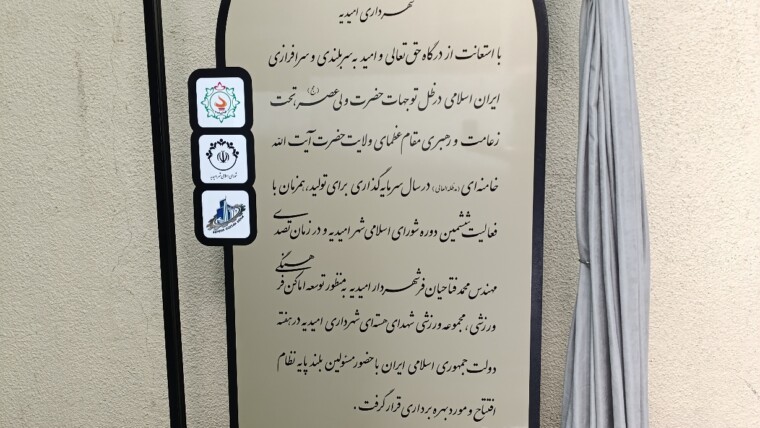 شهرداری امیدیه
با استعانت از درگاه حق تعالی و امید به سربلندی و سرافرازی
ایران اسلامی در ظل توجهات حضرت ولی عصر (عج)، تحت
زعامت و رهبری مقام عظمای ولایت حضرت آیت الله
خامنه ای (مدظله العالی) در سال سرمایه گذاری برای تولید، همزمان با
فعالیت ششمین دوره شورای اسلامی شهر امیدیه و در زمان تصدی
مهندس محمد فتاحیان فر شهردار امیدیه به منظور توسعه اماکن فرهنگی
ورزشی، مجموعه ورزشی شهدای هسته ای شهرداری امیدیه در هفته
دولت جمهوری اسلامی ایران با حضور مسئولین بلند پایه نظام
افتتاح و مورد بهره برداری قرار گرفت.